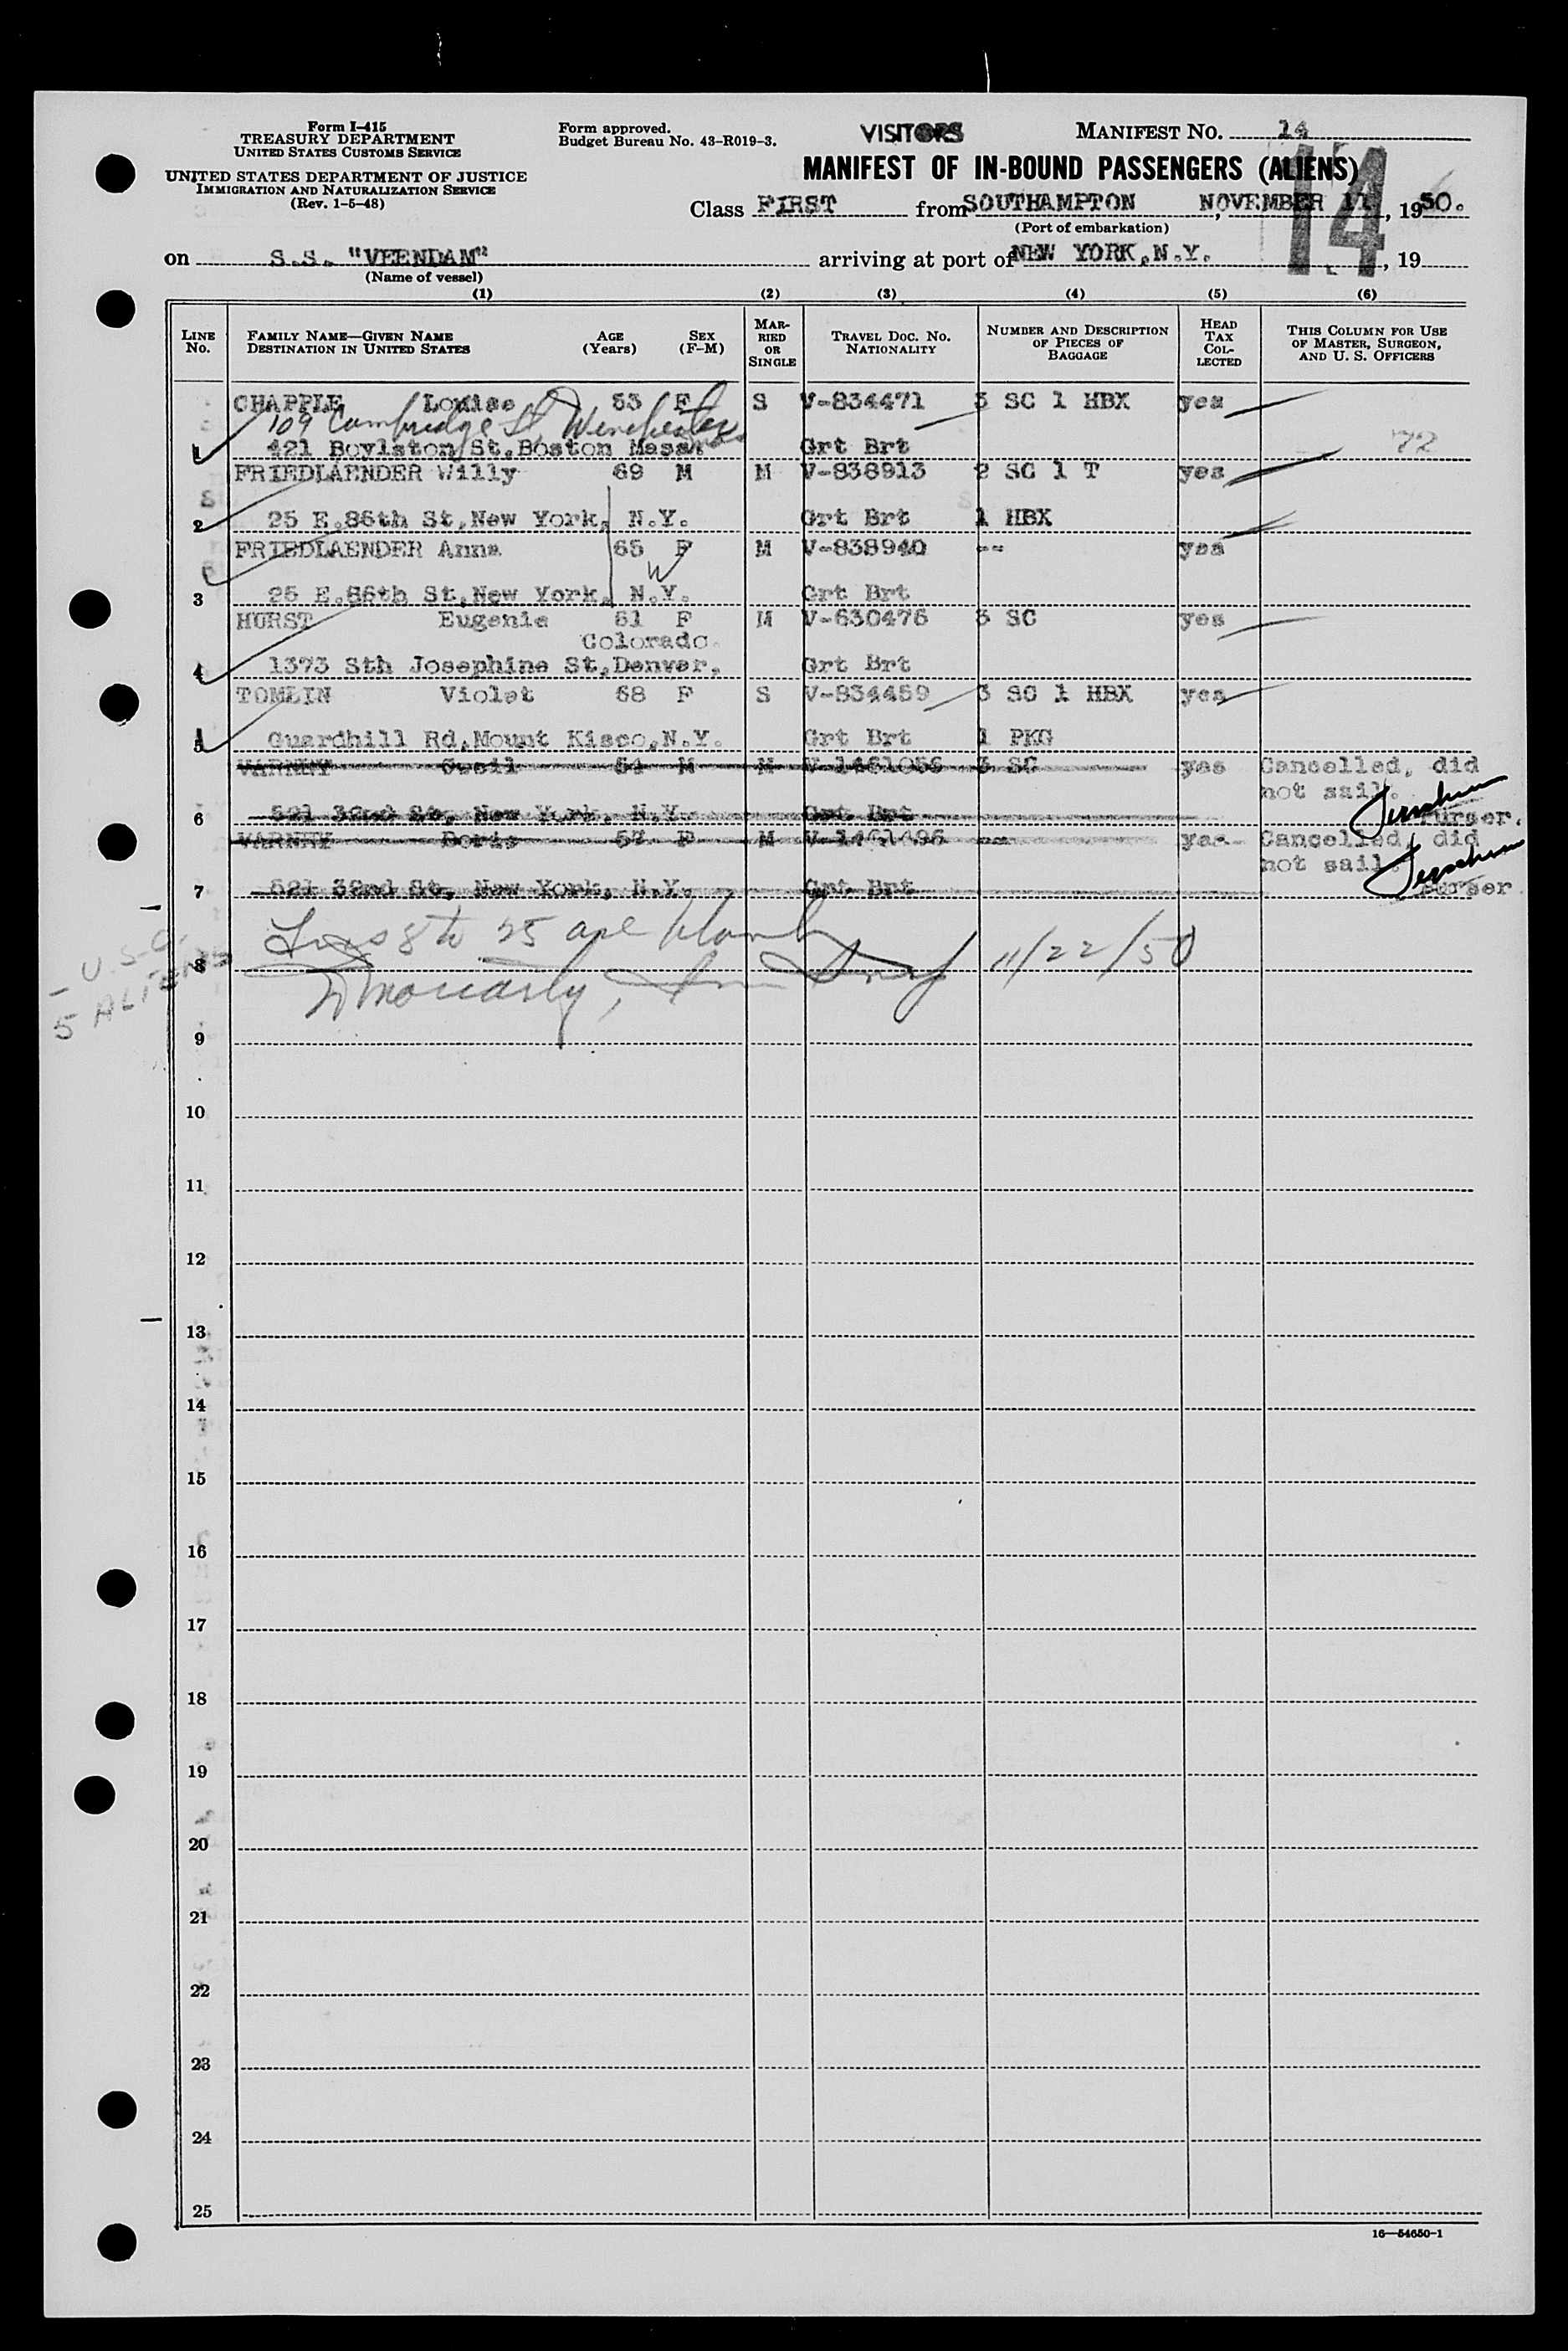 Form I-415
TREASURY DEPARTMENT
UNITED STATES CUSTOMS SERVICE
UNITED STATES DEPARTMENT OF JUSTICE
IMMIGRATION AND NATURALIZATION SERVICE
(Rev. 1-5-48)
Form approved.
Budget Bureau No. 43-R019-3.
VISITORS
MANIFEST NO. 14
MANIFEST OF IN-BOUND PASSENGERS (ALIENS)
14
Class FIRST from SOUTHAMPTON, NOVEMBER 11, 1950.
(Port of embarkation)
on S.S. "VEENDAM" arriving at port of NEW YORK,N.Y. , 19
(Name of vessel)
(1) (2) (3) (4) (5) (6)
LINE No. FAMILY NAME—GIVEN NAME DESTINATION IN UNITED STATES AGE (Years) SEX (F-M) MARRIED OR SINGLE TRAVEL DOC. NO. NATIONALITY NUMBER AND DESCRIPTION OF PIECES OF BAGGAGE HEAD TAX COLLECTED THIS COLUMN FOR USE OF MASTER, SURGEON, AND U. S. OFFICERS
CHAPPLE Louise 53 F S V-834471 3 SC 1 HBX yes
109 Cambridge St, Winchester
1 421 Boylston St.Boston Mass. Grt Brt 72
FRIEDLAENDER Willy 69 M M V-838913 2 SC 1 T yes
2 25 E.86th St,New York, N.Y. Grt Brt 1 HBX
FRIEDLAENDER Anna 65 F M V-838940 -- yes
W
3 25 E.86th St,New York, N.Y. Grt Brt
HURST Eugenie 61 F M V-630476 3 SC yes
Colorado.
4 1373 Sth Josephine St,Denver, Grt Brt
TOMLIN Violet 68 F S V-834459 3 SC 1 HBX yes
5 Guardhill Rd,Mount Kisco,N.Y. Grt Brt 1 PKG
VARNEY Cecil 54 M M V-1461056 3 SC yes Cancelled, did
not sail.
6 521 32nd St, New York, N.Y. Grt Brt Purser.
VARNEY Doris 57 F M V-1461496 -- yes Cancelled, did
not sail.
7 521 32nd St, New York, N.Y. Grt Brt Purser
8 to 25 are blank
- U.S.C.
5 ALIENS
8
Moriarty, 11/22/50
9
10
11
12
13
14
15
16
17
18
19
20
21
22
23
24
25
16—54650-1